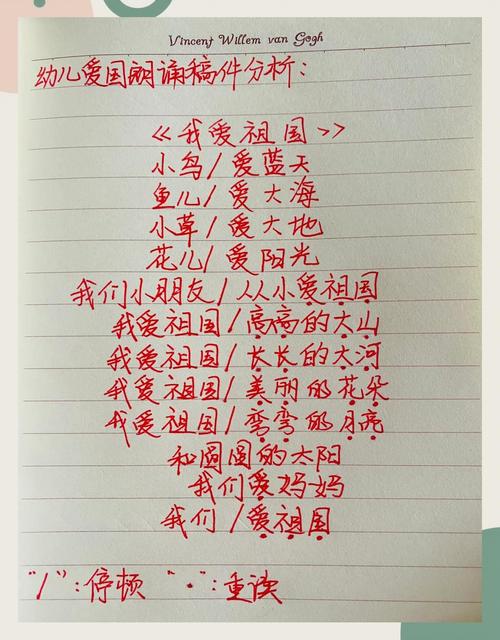 Vincent Willem van Gogh
幼儿爱国朗诵稿件分析：
《我爱祖国》
小鸟/爱蓝天
鱼儿/爱大海
小草/爱大地
花儿/爱阳光
我们小朋友/从小爱祖国
我爱祖国/高高的大山
我爱祖国/长长的大河
我爱祖国/美丽的花朵
我爱祖国/弯弯的月亮
和圆圆的太阳
我们爱妈妈
我们/爱祖国
"/"：停顿 "·"：重读